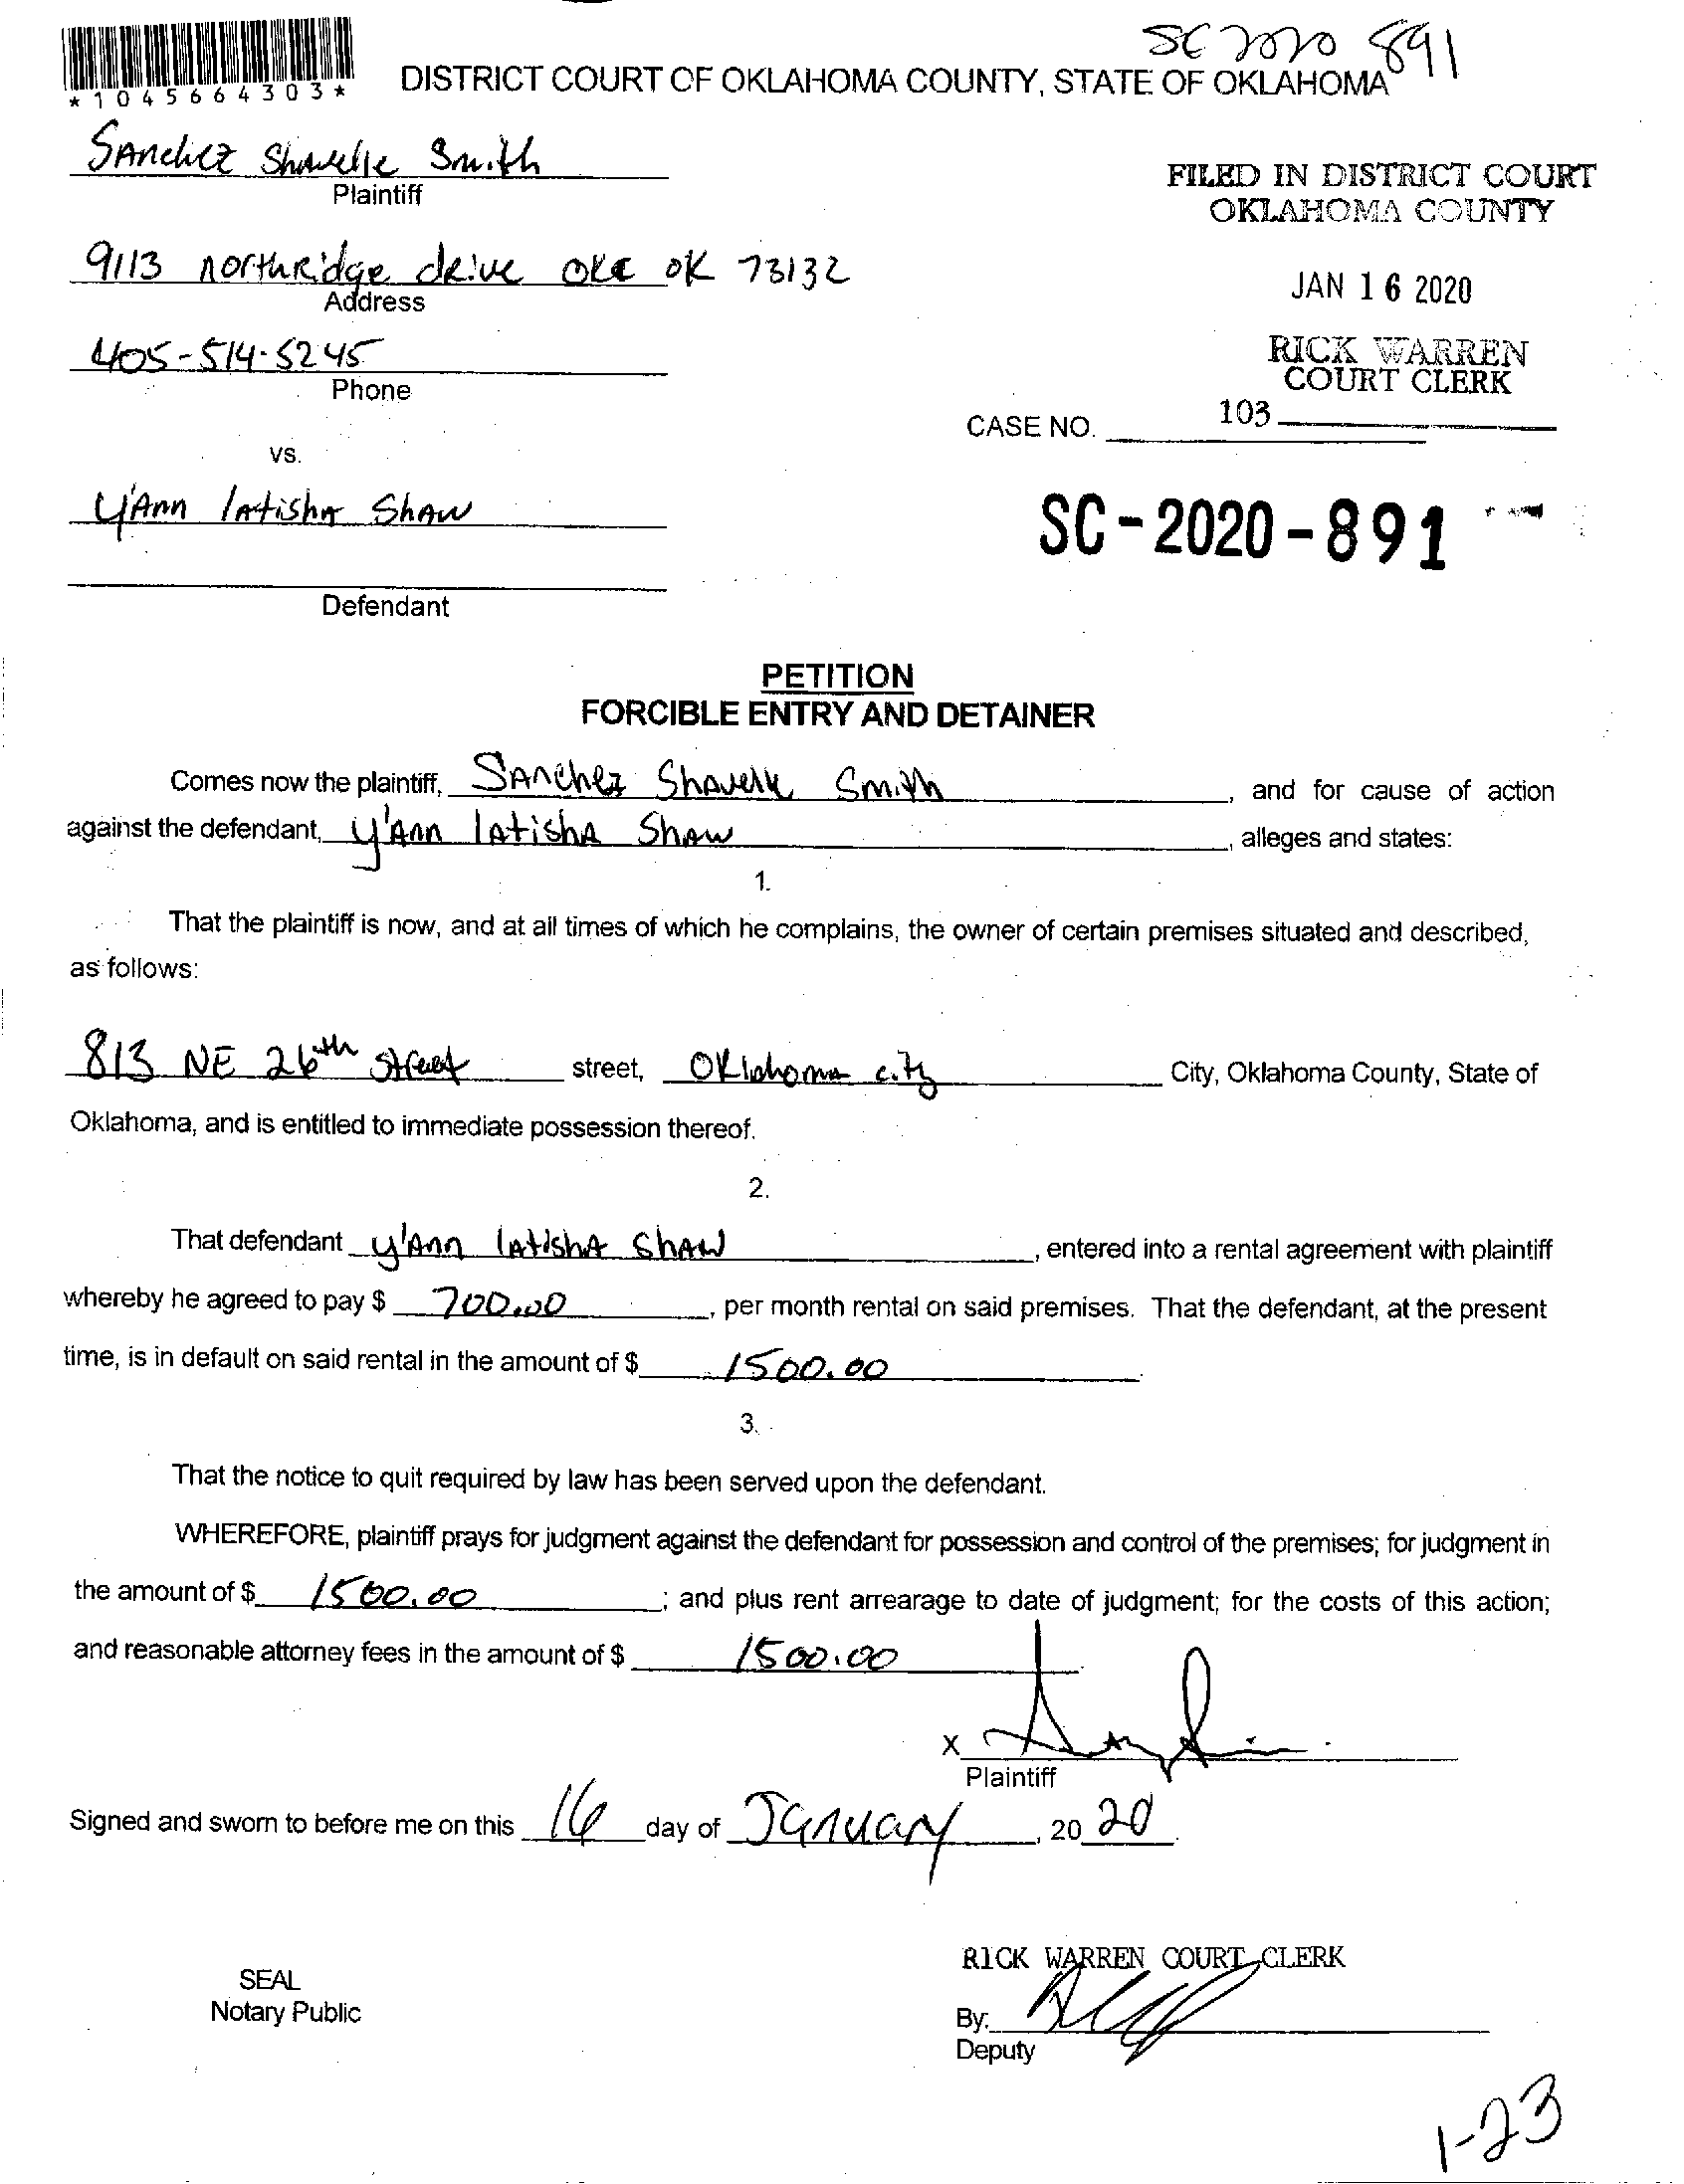 SC 2020 891
*1045664303*
DISTRICT COURT OF OKLAHOMA COUNTY, STATE OF OKLAHOMA
SAnchez Shavelle Smith
Plaintiff
FILED IN DISTRICT COURT
OKLAHOMA COUNTY
9113 northRidge dRive OKC OK 73132
Address
JAN 16 2020
405-514-5245
Phone
RICK WARREN
COURT CLERK
CASE NO. 103
vs.
Y'Ann lAtishA ShAw
SC-2020-891
Defendant
PETITION
FORCIBLE ENTRY AND DETAINER
Comes now the plaintiff, SAnchez ShAvelle Smith, and for cause of action
against the defendant, Y'Ann lAtishA ShAw, alleges and states:
1.
That the plaintiff is now, and at all times of which he complains, the owner of certain premises situated and described,
as follows:
813 NE 26th street street, Oklahoma city City, Oklahoma County, State of
Oklahoma, and is entitled to immediate possession thereof.
2.
That defendant Y'Ann lAtishA ShAw, entered into a rental agreement with plaintiff
whereby he agreed to pay $ 700.00, per month rental on said premises. That the defendant, at the present
time, is in default on said rental in the amount of $ 1500.00
3.
That the notice to quit required by law has been served upon the defendant.
WHEREFORE, plaintiff prays for judgment against the defendant for possession and control of the premises; for judgment in
the amount of $ 1500.00; and plus rent arrearage to date of judgment; for the costs of this action;
and reasonable attorney fees in the amount of $ 1500.00
X
Plaintiff
Signed and sworn to before me on this 16 day of January, 20 20
RICK WARREN COURT CLERK
SEAL
Notary Public
By:
Deputy
1-23